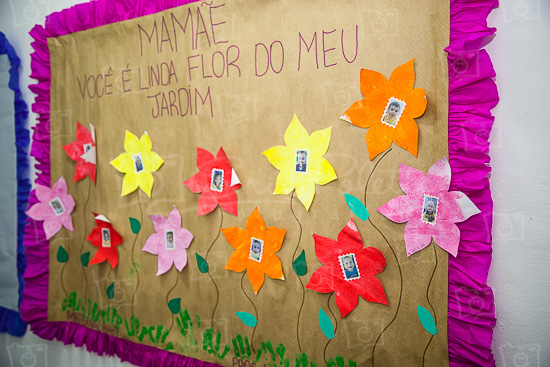 MAMÃE
VOCÊ É LINDA FLOR DO MEU
JARDIM